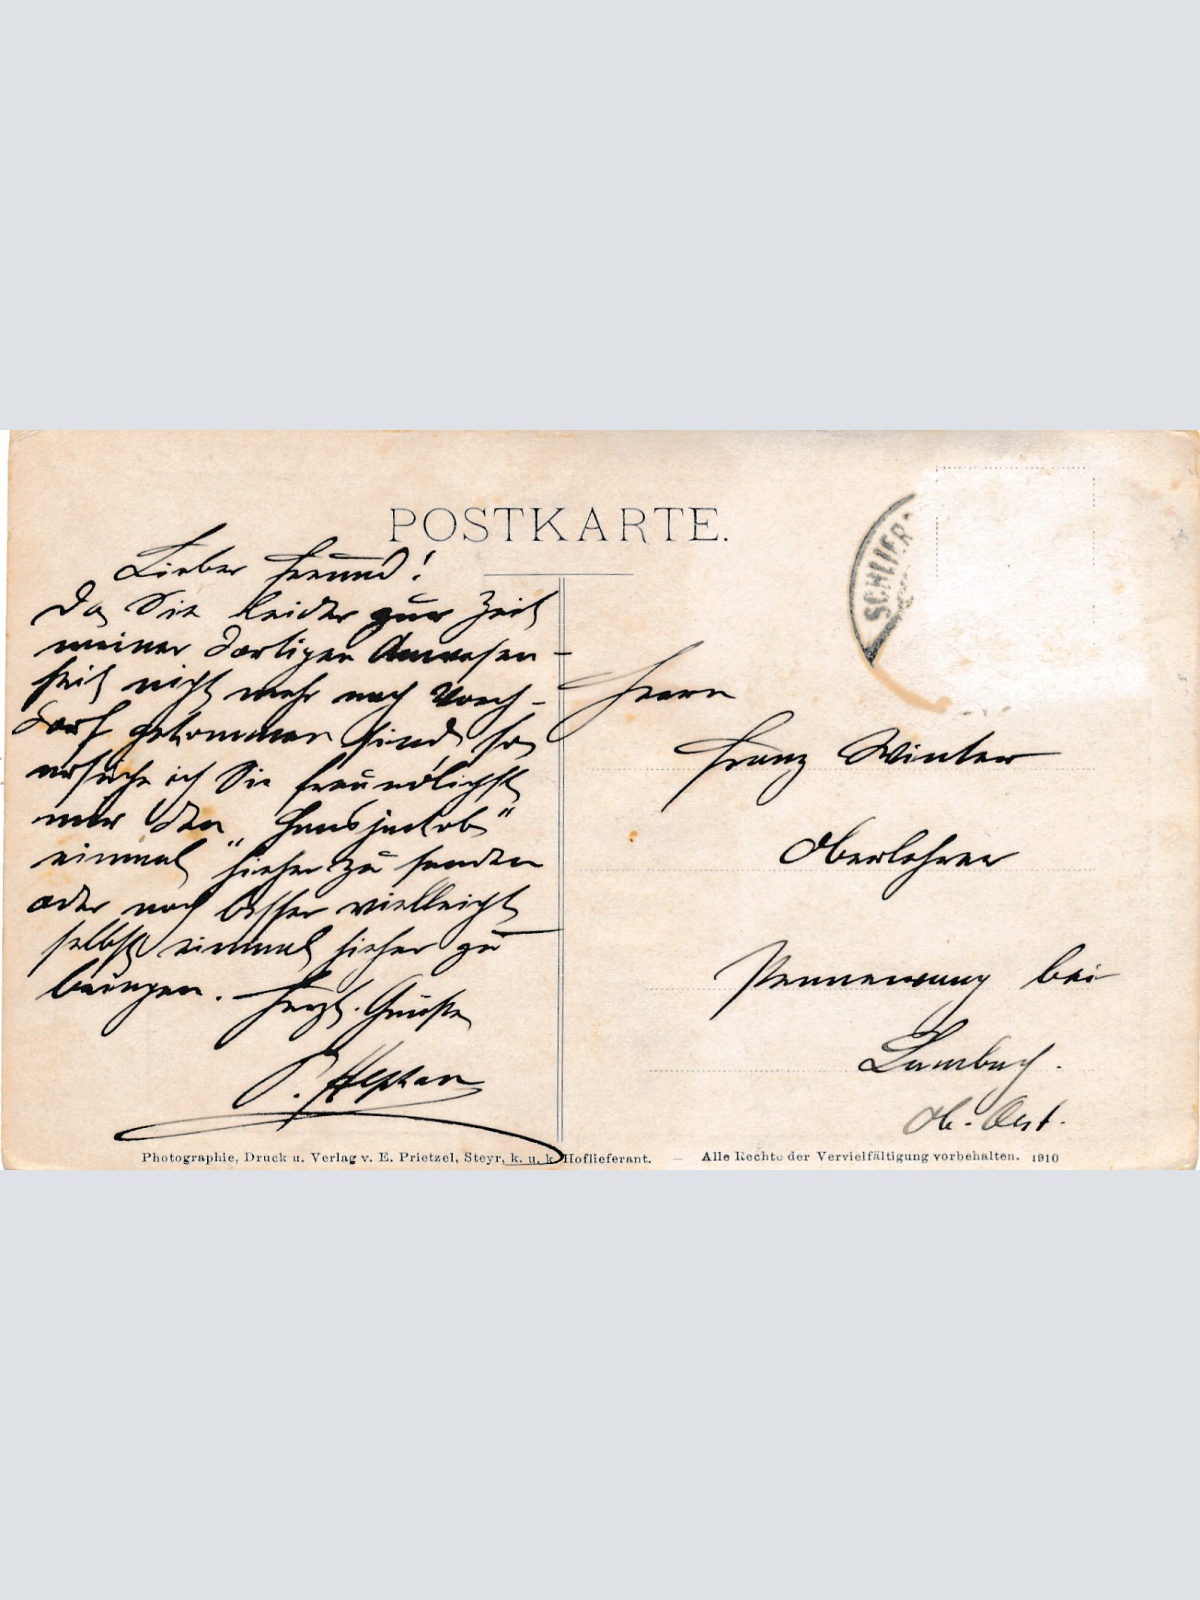 POSTKARTE.
SCHLIER
Lieber Freund!
Da Sie leider zur Zeit
meiner dortigen Anwesen-
heit nicht mehr nach Vorch-
dorf gekommen sind, so
ersuche ich Sie freundlichst
mir den "Hansjackob"
einmal hieher zu senden
oder noch besser vielleicht
selbst einmal hieher zu
bringen. Herzl. Grüße
Herrn
Franz Winter
Oberlehrer
Pennewang bei
Lambach.
Ob. Öst.
Photographie, Druck u. Verlag v. E. Prietzel, Steyr, k. u. k. Hoflieferant. — Alle Rechte der Vervielfältigung vorbehalten. 1910